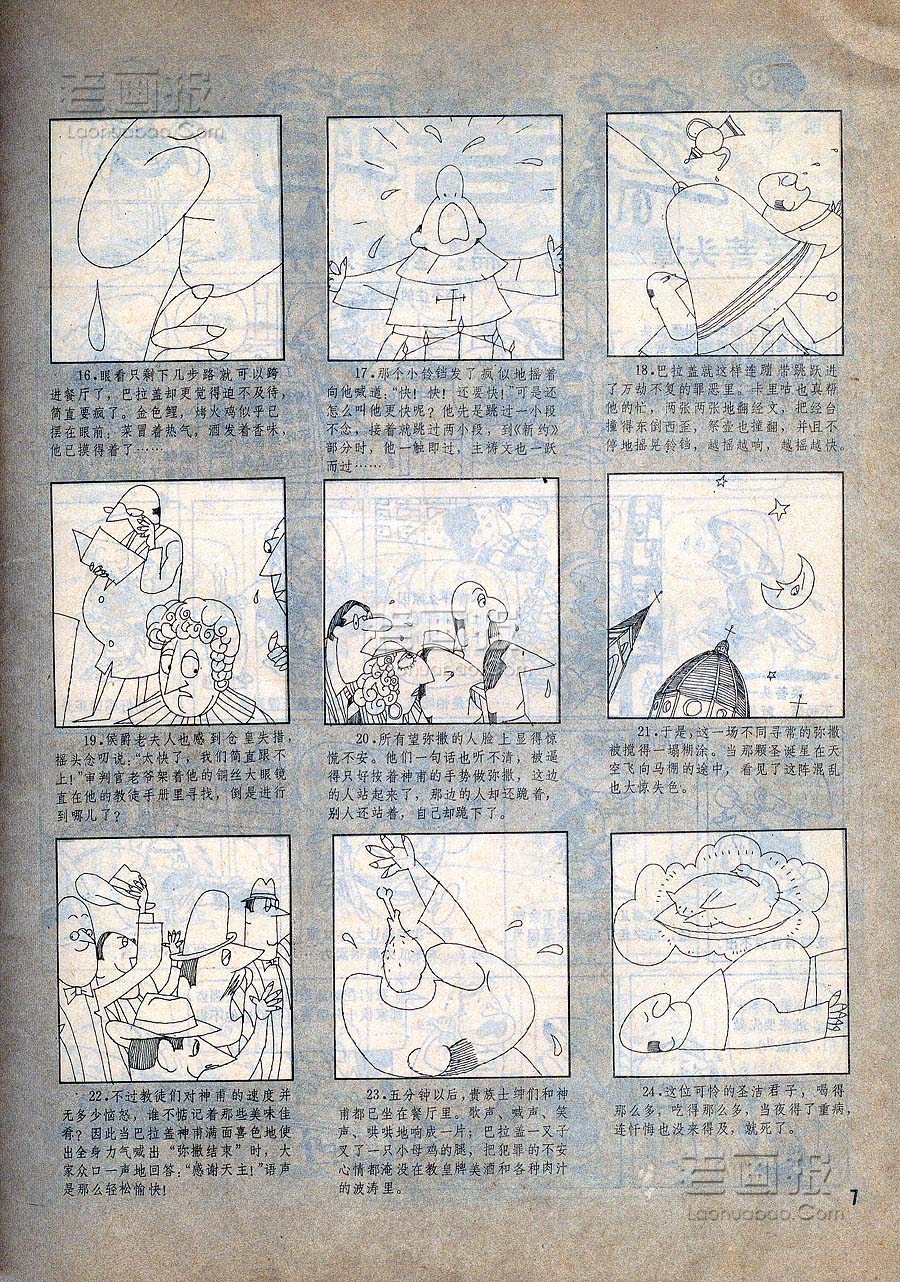 老画报
Laohuabao.Com
16.眼看只剩下几步路就可以跨
进餐厅了，巴拉盖却更觉得迫不及待，
简直要疯了。金色鲤，烤火鸡似乎已
摆在眼前：菜冒着热气，洒发着香味，
他已摸得着了……
17.那个小铃铛发了疯似地摇着
向他喊道：“快！快！还要快！”可是还
怎么叫他更快呢？他先是跳过一小段
不念，接着就跳过两小段，到《新约》
部分时，他一触即过，主祷文也一跃
而过……
18.巴拉盖就这样连蹦带跳跃进
了万劫不复的罪恶里。卡里咕也真帮
他的忙，两张两张地翻经文，把经台
撞得东倒西歪，祭壶也撞翻，并且不
停地摇晃铃铛，越摇越响，越摇越快。
19.侯爵老夫人也感到仓皇失措，
摇头念叨说：“太快了，我们简直跟不
上！”审判官老爷架着他的铜丝大眼镜
直在他的教徒手册里寻找，倒是进行
到哪儿了？
20.所有望弥撒的人脸上显得惊
慌不安。他们一句话也听不清，被逼
得只好按着神甫的手势做弥撒，这边
的人站起来了，那边的人却还跪着，
别人还站着，自己却跪下了。
21.于是，这一场不同寻常的弥撒
被搅得一塌糊涂。当那颗圣诞星在天
空飞向马棚的途中，看见了这阵混乱
也大惊失色。
22.不过教徒们对神甫的速度并
无多少恼怒，谁不惦记着那些美味佳
肴？因此当巴拉盖神甫满面喜色地使
出全身力气喊出“弥撒结束”时，大
家众口一声地回答：“感谢天主！”语声
是那么轻松愉快！
23.五分钟以后，贵族士绅们和神
甫都已坐在餐厅里。歌声、喊声、笑
声、哄哄地响成一片；巴拉盖一叉子
叉了一只小母鸡的腿，把犯罪的不安
心情都淹没在教皇牌美酒和各种肉汁
的波涛里。
24.这位可怜的圣洁君子，喝得
那么多，吃得那么多，当夜得了重病，
连忏悔也没来得及，就死了。
老画报
Laohuabao.Com
7